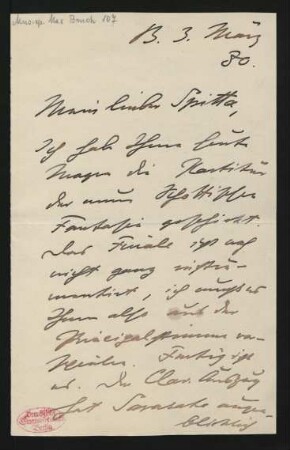 B. 3. März
80.
Mein lieber Spitta,
Ich habe Ihnen heute
Morgen die Partitur
der neuen Schottischen
Fantasie geschickt.
Das Finale ist noch
nicht ganz instru-
mentirt, ich mußte es
Ihnen also aus der
Principalstimme
Fertig ist
es. Der Clav. Auszug
hat Sarasate